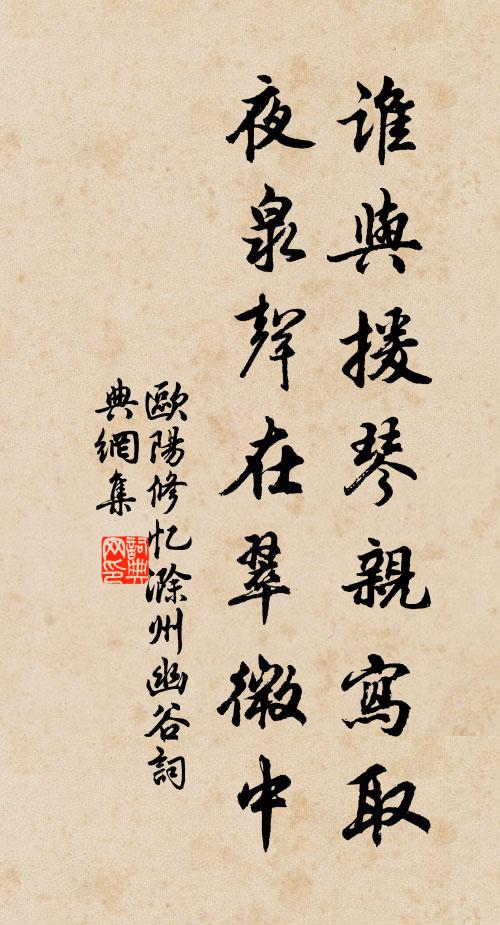 谁與援琴親寫取
夜泉聲在翠微中
歐陽修忆滁州幽谷詞
典網集
詞典網印